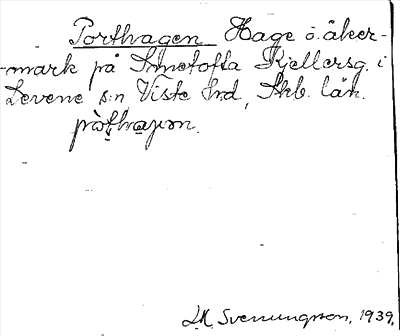 Porthagen Hage o. åker-
-mark på Smetofta Kjellersg. i
Levene s:n, Viste hrd, Skb. län.
Svenungsson, 1939.